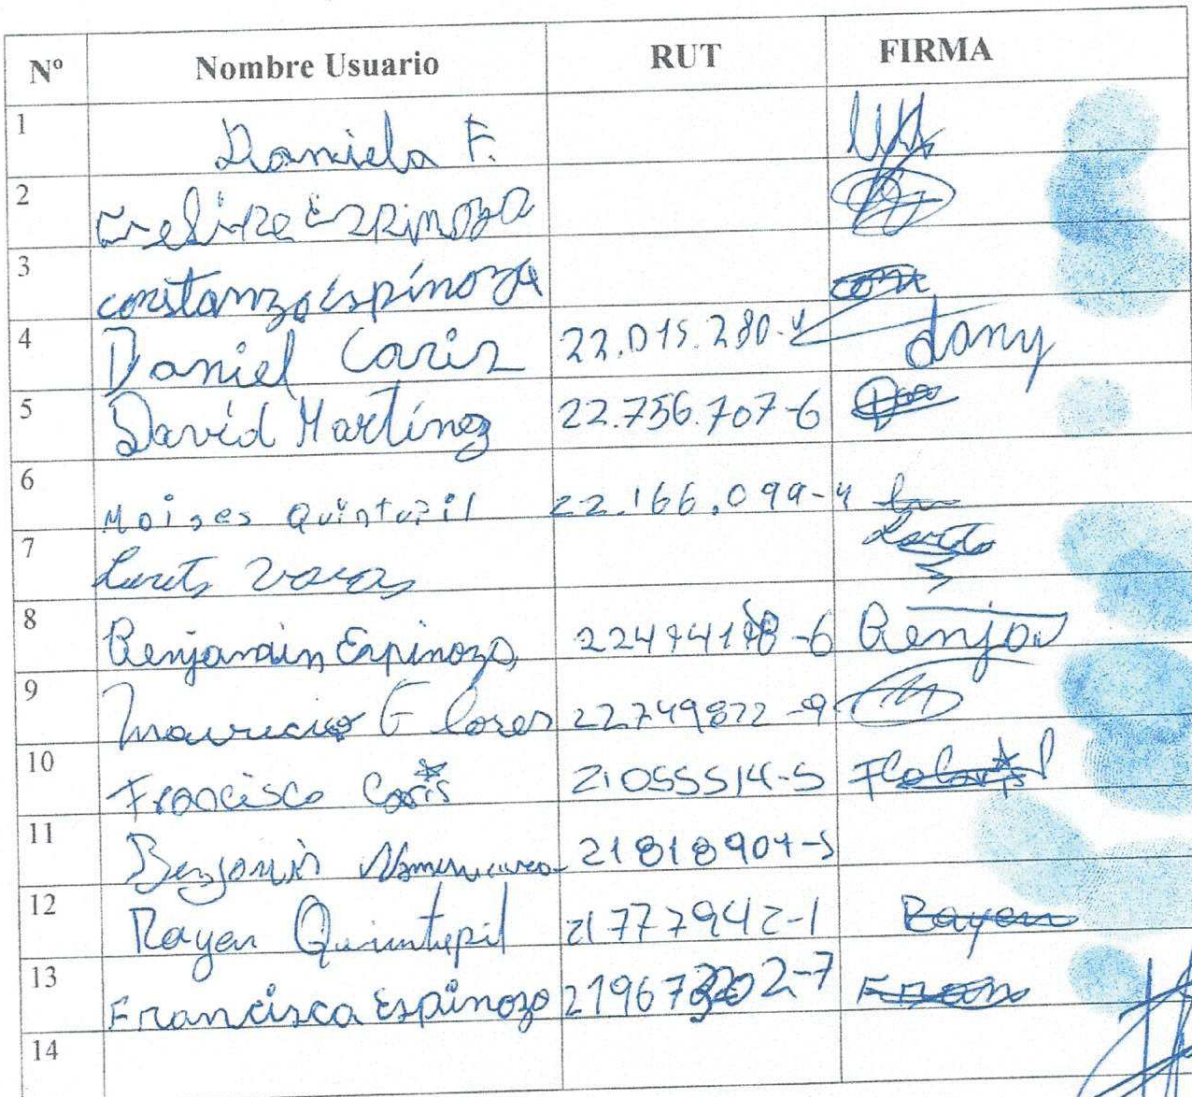 Nº Nombre Usuario RUT FIRMA
1 Daniela F.
2 Espinoza
3 constanza espínoza
4 Daniel Caris 22.015.280- dany
5 David Martínez 22.756.707-6
6 Moises Quintupil 22.166.099-4
7
8 Benjamin Espinoza -6 Benja
9 Mauricio Flores 22.749822-9
10 Francisco Caris 21055514-5
11 Benjamin 21818904-5
12 Rayen Quintupil 21777942-1 Rayen
13 Francisca Espinoza Fran
14